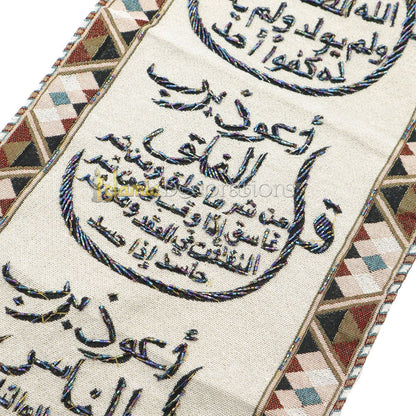 الله الصمد
ولم يولد ولم يكن
له كفوا أحد
قل أعوذ برب
الفلق
من شر ما خلق ومن شر
غاسق إذا وقب ومن شر
النفاثات في العقد ومن شر
حاسد إذا حسد
أعوذ برب
الناس